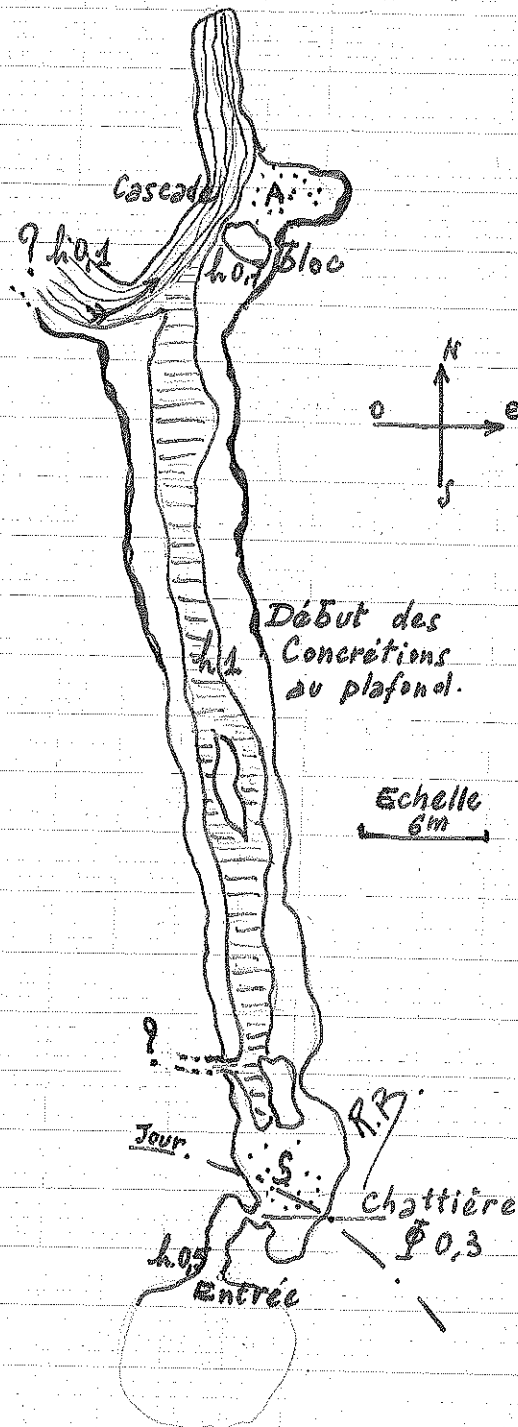 Cascade
A
? h 0,1
Bloc
N
O
E
S
Début des
Concrétions
au plafond.
h 1
Echelle
6m
?
R.R.
Jour.
S
Chattière
Φ 0,3
h 0,5
Entrée